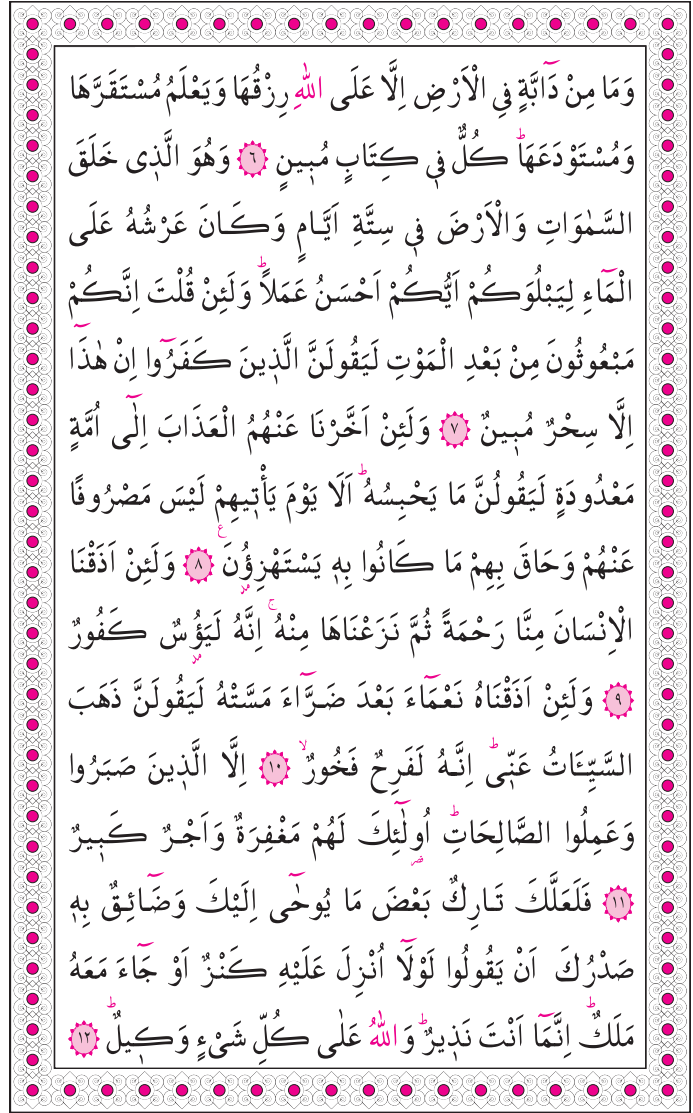 وَمَا مِنْ دَٓابَّةٍ فِي الْاَرْضِ اِلَّا عَلَى اللّٰهِ رِزْقُهَا وَيَعْلَمُ مُسْتَقَرَّهَا
وَمُسْتَوْدَعَهَاۜ كُلٌّ فٖي كِتَابٍ مُبٖينٍ ﴿٦﴾ وَهُوَ الَّذٖي خَلَقَ
السَّمٰوَاتِ وَالْاَرْضَ فٖي سِتَّةِ اَيَّامٍ وَكَانَ عَرْشُهُ عَلَى
الْمَٓاءِ لِيَبْلُوَكُمْ اَيُّكُمْ اَحْسَنُ عَمَلاًؕ وَلَئِنْ قُلْتَ اِنَّكُمْ
مَبْعُوثُونَ مِنْ بَعْدِ الْمَوْتِ لَيَقُولَنَّ الَّذٖينَ كَفَرُٓوا اِنْ هٰذَٓا
اِلَّا سِحْرٌ مُبٖينٌ ﴿٧﴾ وَلَئِنْ اَخَّرْنَا عَنْهُمُ الْعَذَابَ اِلٰٓى اُمَّةٍ
مَعْدُودَةٍ لَيَقُولُنَّ مَا يَحْبِسُهُؕ اَلَا يَوْمَ يَأْتٖيهِمْ لَيْسَ مَصْرُوفًا
عَنْهُمْ وَحَاقَ بِهِمْ مَا كَانُوا بِهٖ يَسْتَهْزِؤُ۫نَ ﴿٨﴾ ع وَلَئِنْ اَذَقْنَا
الْاِنْسَانَ مِنَّا رَحْمَةً ثُمَّ نَزَعْنَاهَا مِنْهُۚ اِنَّهُ لَيَؤُ۫سٌ كَفُورٌ
﴿٩﴾ وَلَئِنْ اَذَقْنَاهُ نَعْمَٓاءَ بَعْدَ ضَرَّٓاءَ مَسَّتْهُ لَيَقُولَنَّ ذَهَبَ
السَّيِّـَٔاتُ عَنّٖيؕ اِنَّهُ لَفَرِحٌ فَخُورٌۙ ﴿١٠﴾ اِلَّا الَّذٖينَ صَبَرُوا
وَعَمِلُوا الصَّالِحَاتِؕ اُو۬لٰٓئِكَ لَهُمْ مَغْفِرَةٌ وَاَجْرٌ كَبٖيرٌ
﴿١١﴾ فَلَعَلَّكَ تَارِكٌ بَعْضَ مَا يُوحٰٓى اِلَيْكَ وَضَٓائِقٌ بِهٖ
صَدْرُكَ اَنْ يَقُولُوا لَوْلَٓا اُنْزِلَ عَلَيْهِ كَنْزٌ اَوْ جَٓاءَ مَعَهُ
مَلَكٌؕ اِنَّمَٓا اَنْتَ نَذٖيرٌؕ وَاللّٰهُ عَلٰى كُلِّ شَيْءٍ وَكٖيلٌؕ ﴿١٢﴾